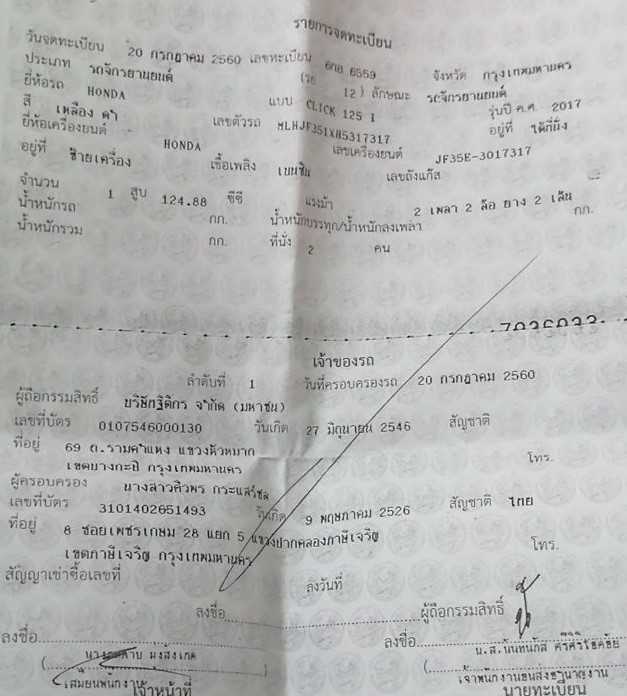 รายการจดทะเบียน
วันจดทะเบียน 20 กรกฎาคม 2560 เลขทะเบียน 6กอ 6559 จังหวัด กรุงเทพมหานคร
ประเภท รถจักรยานยนต์ (รย 12) ลักษณะ รถจักรยานยนต์
ยี่ห้อรถ HONDA แบบ CLICK 125 I รุ่นปี ค.ศ. 2017
สี เหลือง ดำ เลขตัวรถ MLHJF351XH5317317 อยู่ที่ ใต้ที่นั่ง
ยี่ห้อเครื่องยนต์ HONDA เลขเครื่องยนต์ JF35E-3017317
อยู่ที่ ซ้ายเครื่อง เชื้อเพลิง เบนซิน เลขถังแก๊ส
จำนวน 1 สูบ 124.88 ซีซี แรงม้า 2 เพลา 2 ล้อ ยาง 2 เส้น
น้ำหนักรถ กก. น้ำหนักบรรทุก/น้ำหนักลงเพลา กก.
น้ำหนักรวม กก. ที่นั่ง 2 คน
เจ้าของรถ
ลำดับที่ 1 วันที่ครอบครองรถ 20 กรกฎาคม 2560
ผู้ถือกรรมสิทธิ์ บริษัทฐิติกร จำกัด (มหาชน)
เลขที่บัตร 0107546000130 วันเกิด 27 มิถุนายน 2546 สัญชาติ
ที่อยู่ 69 ถ.รามคำแหง แขวงหัวหมาก
เขตบางกะปิ กรุงเทพมหานคร โทร.
ผู้ครอบครอง นางสาวศิวพร กระแสร์ชล
เลขที่บัตร 3101402651493 วันเกิด 9 พฤษภาคม 2526 สัญชาติ ไทย
ที่อยู่ 8 ซอยเพชรเกษม 28 แยก 5 แขวงปากคลองภาษีเจริญ
เขตภาษีเจริญ กรุงเทพมหานคร โทร.
สัญญาเช่าซื้อเลขที่ ลงวันที่
ลงชื่อ ผู้ถือกรรมสิทธิ์
ลงชื่อ ลงชื่อ
น.ส.นันทนภัส
เสมียนพนักงาน เจ้าพนักงานขนส่งชำนาญงาน
เจ้าหน้าที่ นายทะเบียน